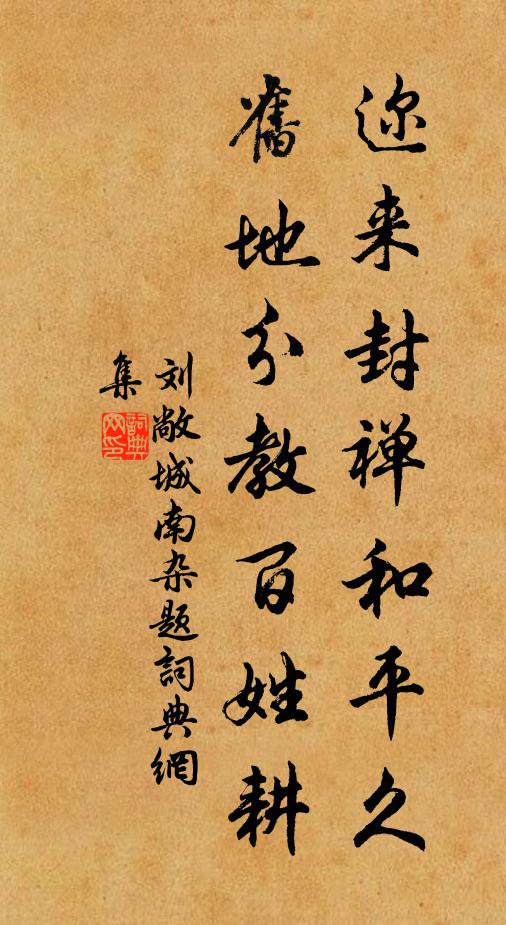 迩来封禅和平久
舊地分教百姓耕
刘敞城南杂题詞典網
集
詞典网印